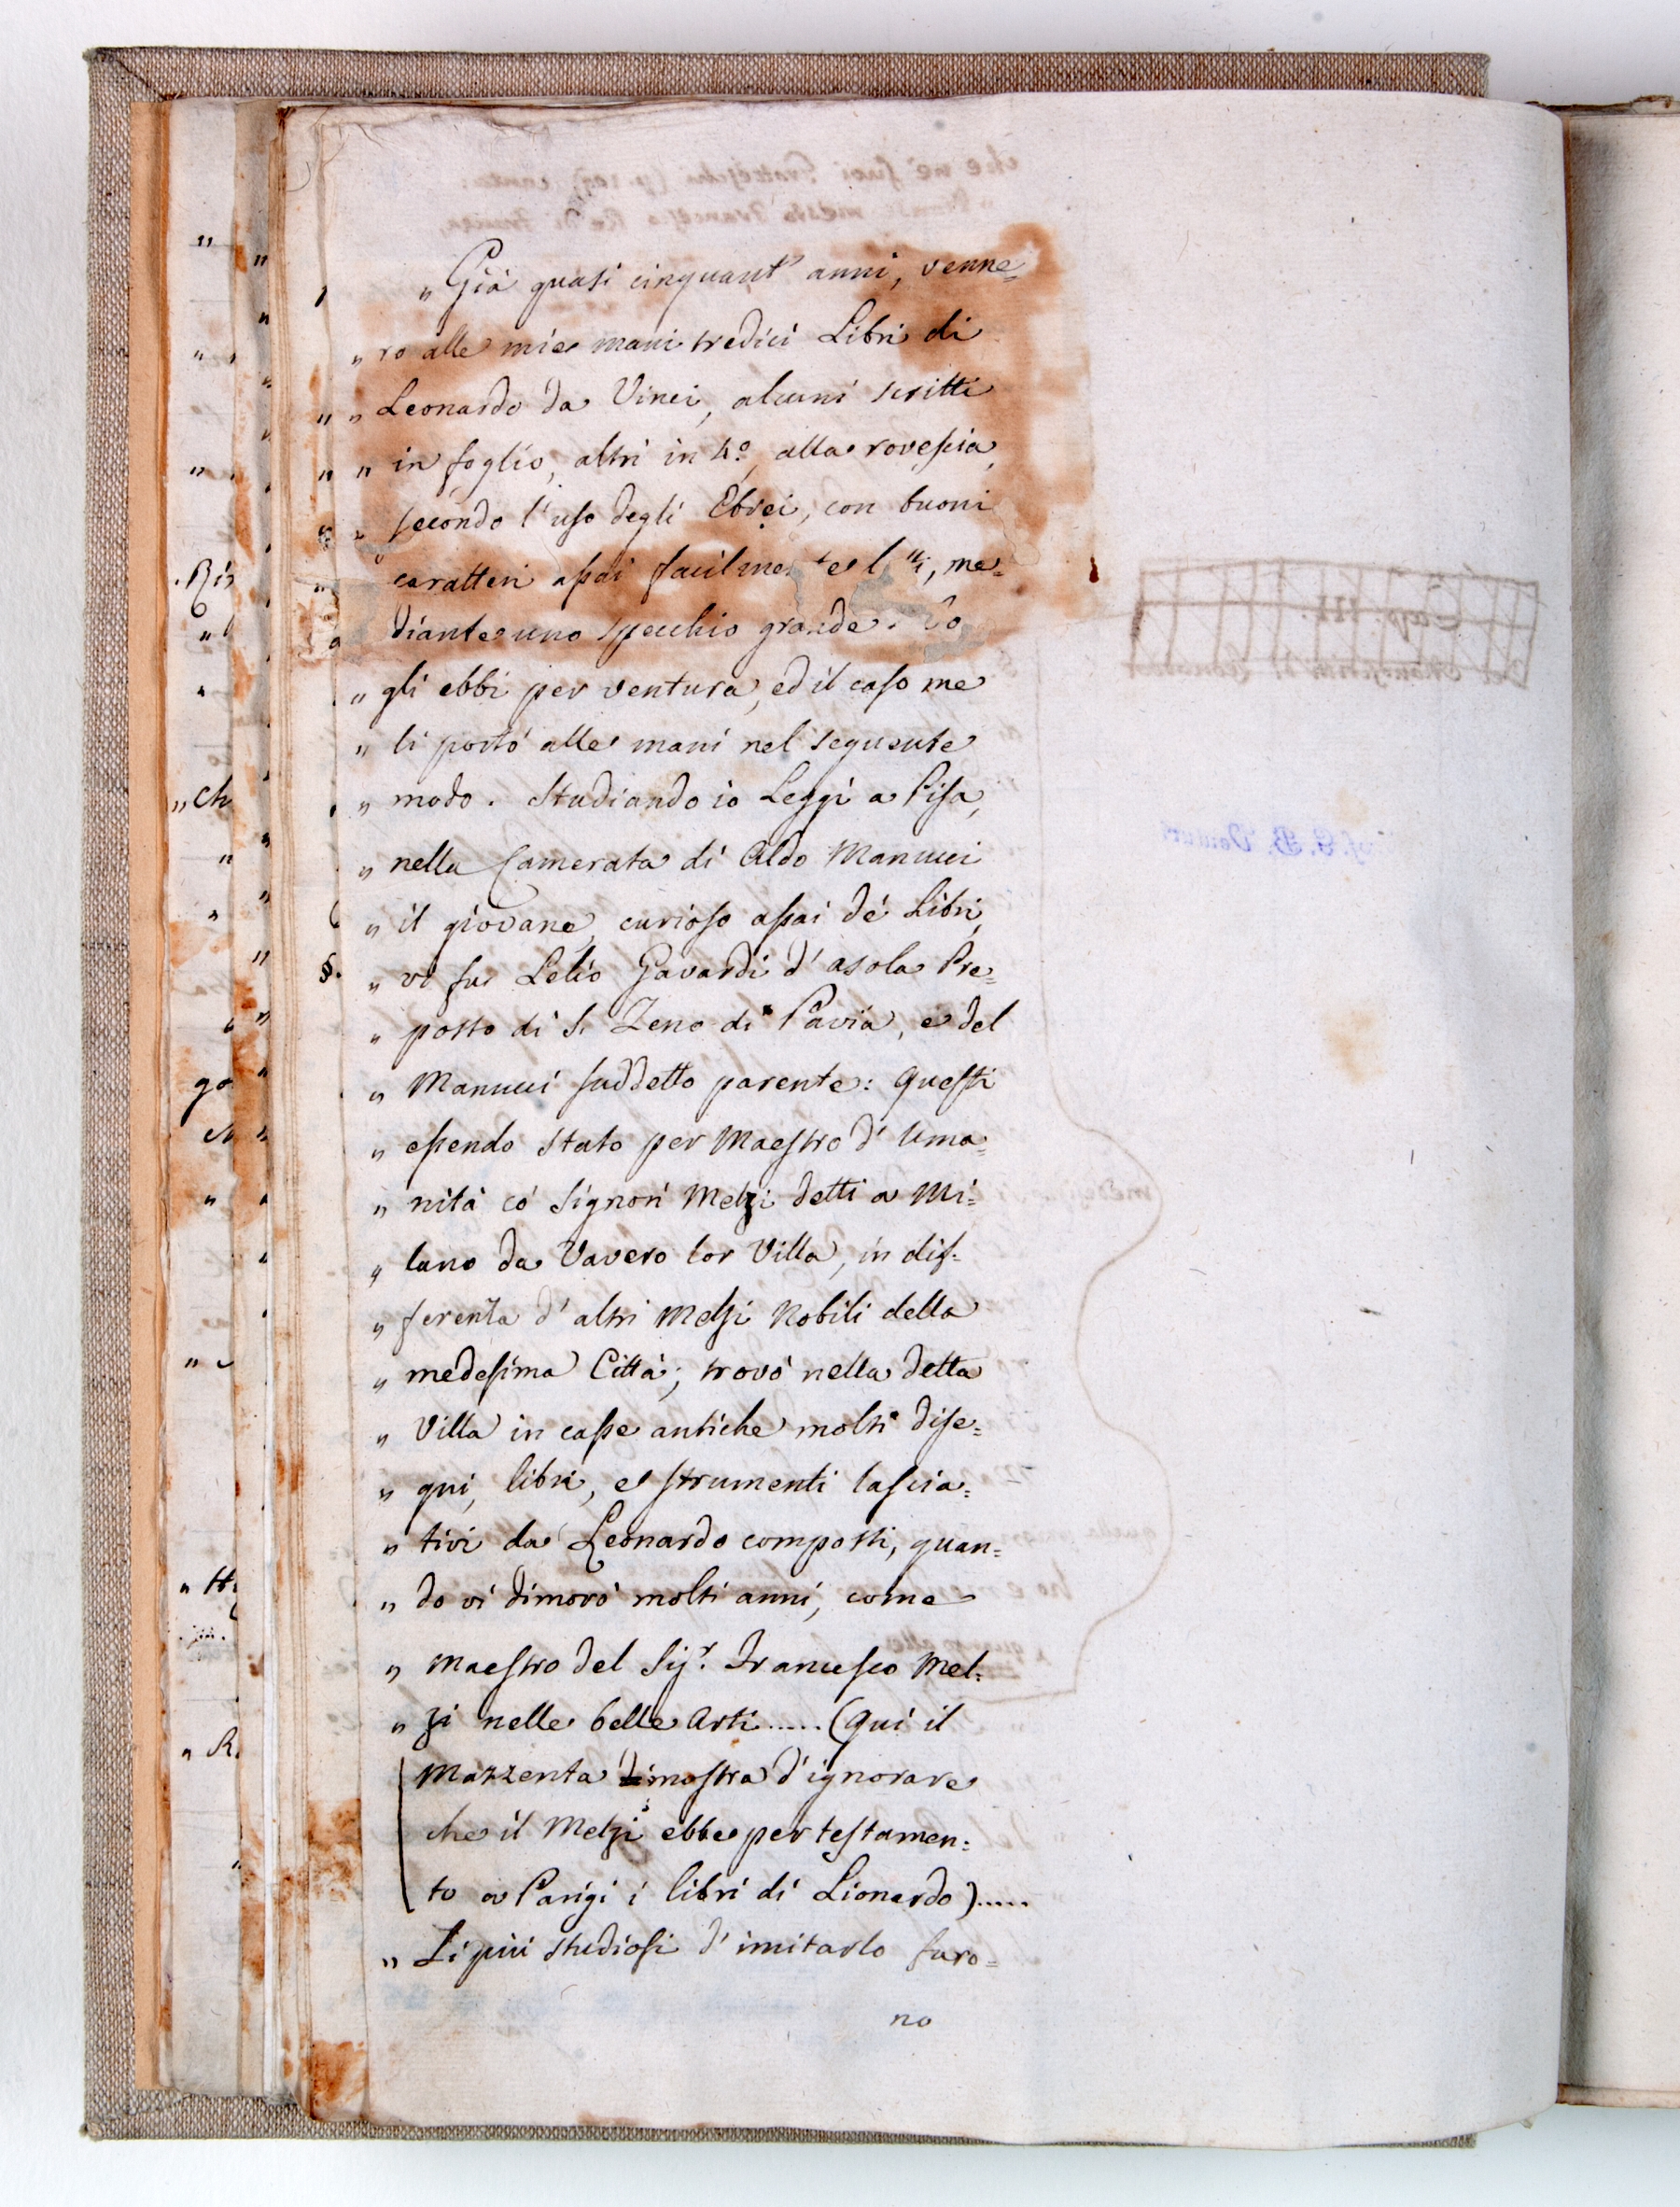 „ Già quasi cinquant' anni, venne=
„ ro alle mie mani tredici Libri di
„ Leonardo da Vinci, alcuni scritti
„ in foglio, altri in 4.º, alla rovescia,
„ secondo l'uso degli Ebrei, con buoni
caratteri assai facilme te l tti, me=
diante uno specchio grande. Io
„ gli ebbi per ventura, ed il caso me
„ li portò alle mani nel seguente
„ modo. Studiando io Leggi a Pisa,
„ nella Camerata di Aldo Manucci
„ il giovane, curioso assai de' Libri,
„ vi fu Lelio Gavardi d' asola Pre=
„ posto di S. Zeno di Pavia, e del
„ Manucci suddetto parente: questi
„ essendo stato per Maestro d' Uma=
„ nità co' Signori Melzi detti a Mi=
„ lano da Vavero lor Villa, in dif-
„ ferenza d' altri Melzi Nobili della
„ medesima Città; trovò nella detta
„ Villa in casse antiche molti dise=
„ gni, libri, e strumenti lascia=
„ tivi da Leonardo composti, quan=
„ do vi dimorò molti anni, come
„ Maestro del Sig.r Francesco Mel=
„ zi nelle belle Arti..... (Qui il
Mazzenta dimostra d' ignorare
che il Melzi ebbe per testamen=
to a Parigi i libri di Lionardo).....
„ Li più studiosi d' imitarlo furo=
no